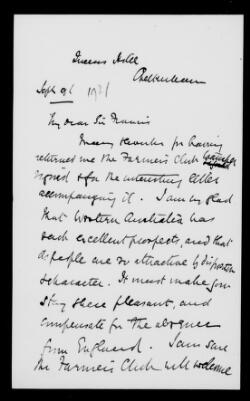 Queens Hotel
Cheltenham
Sept 9th 1921
My dear Sir Francis
Many thanks for having
returned me the Farmers Club
signed & for the interesting letter
accompanying it. I am so glad
that Western Australia has
such excellent prospects, and that
its people are so attractive by disposition
& character. It must make your
stay there pleasant, and
compensate for the absence
from England. I am sure
the Farmers Club will welcome